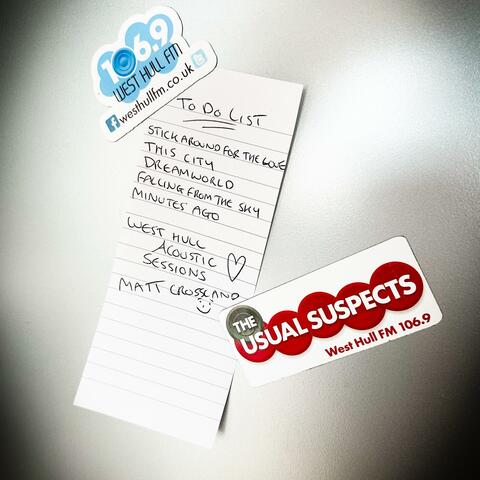 106.9
WEST HULL FM
westhullfm.co.uk
TO DO LIST
STICK AROUND FOR THE LOVE
THIS CITY
DREAMWORLD
FALLING FROM THE SKY
MINUTES AGO
WEST HULL
ACOUSTIC
SESSIONS
MATT CROSSLAND
THE
USUAL SUSPECTS
West Hull FM 106.9